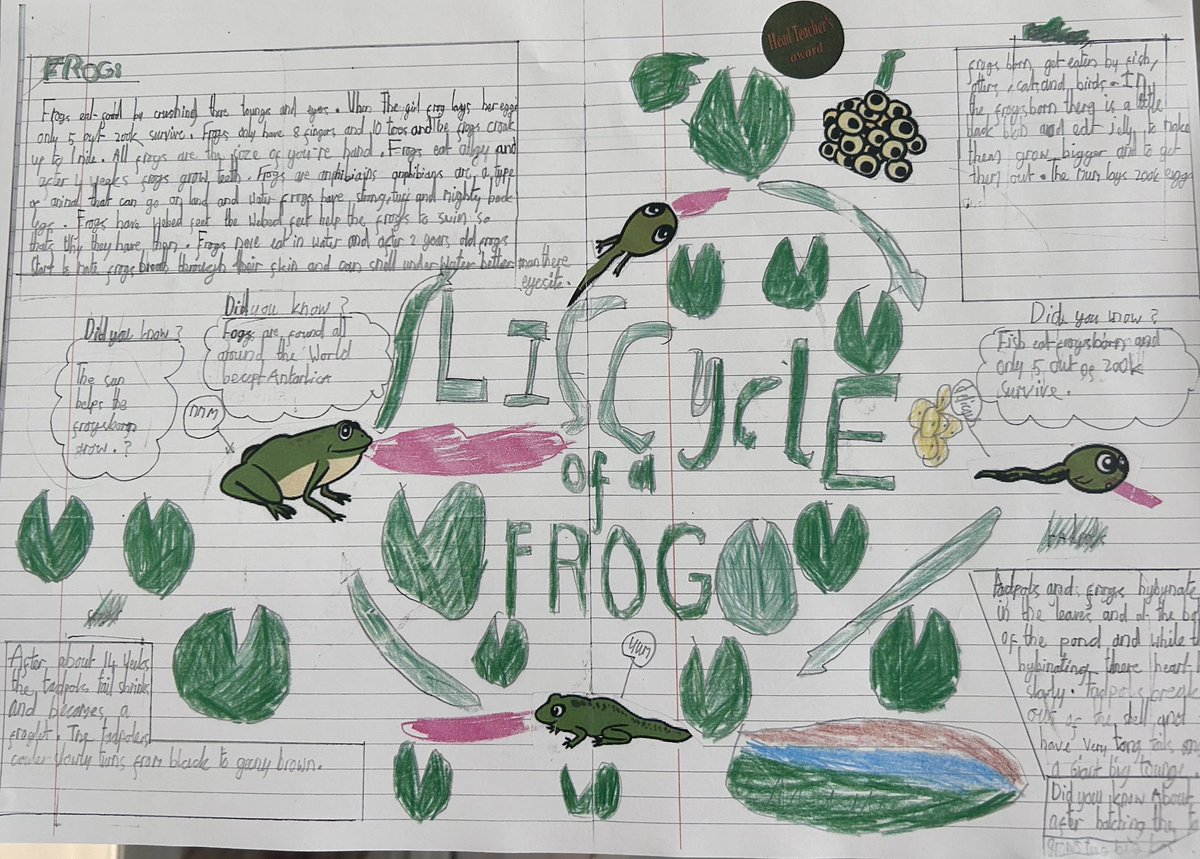 Head Teacher's
award
FROGS
Frogs eat food by crushing there toungs and eyes. When The girl frog lays her eggs
only 5 out 200k survive. Frogs only have 8 fingers and 10 toos and the frogs croak
up to 1 mile. All frogs are the size of you're hand. Frogs eat algy and
after 4 weeks frogs grow teeth. Frogs are amphibiains amphibians are a type
of animal that can go on land and water frogs have strong, tuff and mighty back
legs. Frogs have Webed feet the Webed feet help the frogs to swim so
thats Why they have them. Frogs neve eat in water and after 2 years old frogs
start to mate frogs breath through their skin and can smell under water better than there
eyesite.
frogs born get eaten by fish,
otters, cats and birds. In
the frogsborn there is a little
black blob and eat Jelly to make
them grow bigger and to get
them out. The Mum lays 200k eggs
Did you know?
The sun
helps the
frogsborn
grow.?
Did you know?
Fogs are found all
around the World
becept Antartica
MMM
LIFE Cycle
of a
FROG
Did you know?
Fish eat frogsborn and
only 5 out of 200k
survive.
Tadpols and frogs hybynate
in the leaves and at the
of the pond and while
hybinating there heart
slowly. Tadpols break
out of the shell and
have very long tails
a Giant big tounge
Did you know About
after hatching they
YUM
After about 14 Weeks
the tadpols tail shrinks
and becomes a
froglet. The tadpoles
couler slowly turns from black to greeny brown.